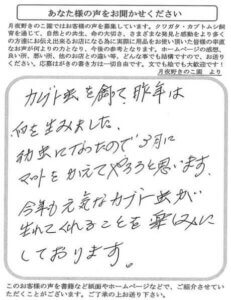 あなた様の声をお聞かせください
月夜野きのこ園ではお客様の声を募集しています。クワガタ・カブトムシ飼
育を通じて、自然との共生、命の大切さ、さまざまな発見と感動をより多く
の方達にお伝え出来るお店になる為に実際に商品をお使い頂いた皆様の率直
なお声が何よりの力となり、今後の参考となります。ホームページの感想、
良い所、悪い所、他のお店との違い等、どんな事でも結構ですので、お送り
ください。応募はがきの書き方は一切自由です。文でも絵でも大歓迎です!
月夜野きのこ園 より
カブト虫を飼って、昨年は
卵を生みました。
幼虫になったので、3月に
マットをかえてやろうと思います。
今年も元気なカブト虫が
生れてくれることを楽しみに
しております。
このお客様の声を書籍など紙面やホームページなどで、ご紹介させていた
だくことがございます。ご了承の上お送り下さい。